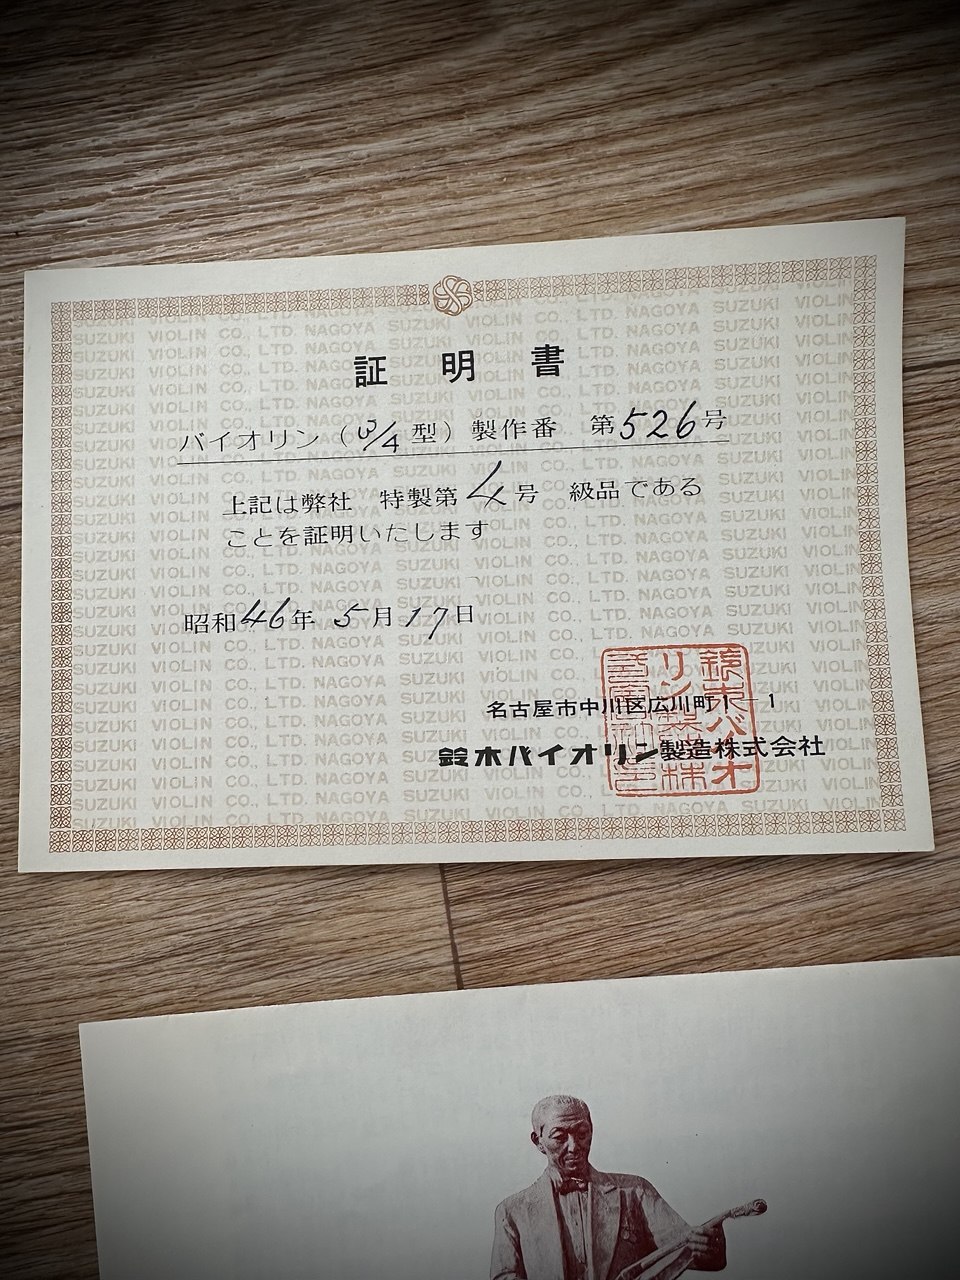 SUZUKI VIOLIN CO., LTD. NAGOYA SUZUKI VIOLIN CO., LTD. NAGOYA SUZUKI VIOLIN
証明書
バイオリン（3/4型）製作番 第526号
上記は弊社 特製第4号 級品である
ことを証明いたします
昭和46年 5月17日
名古屋市中川区広川町1－1
鈴木バイオリン製造株式会社
鈴木バイオ
リン製造株